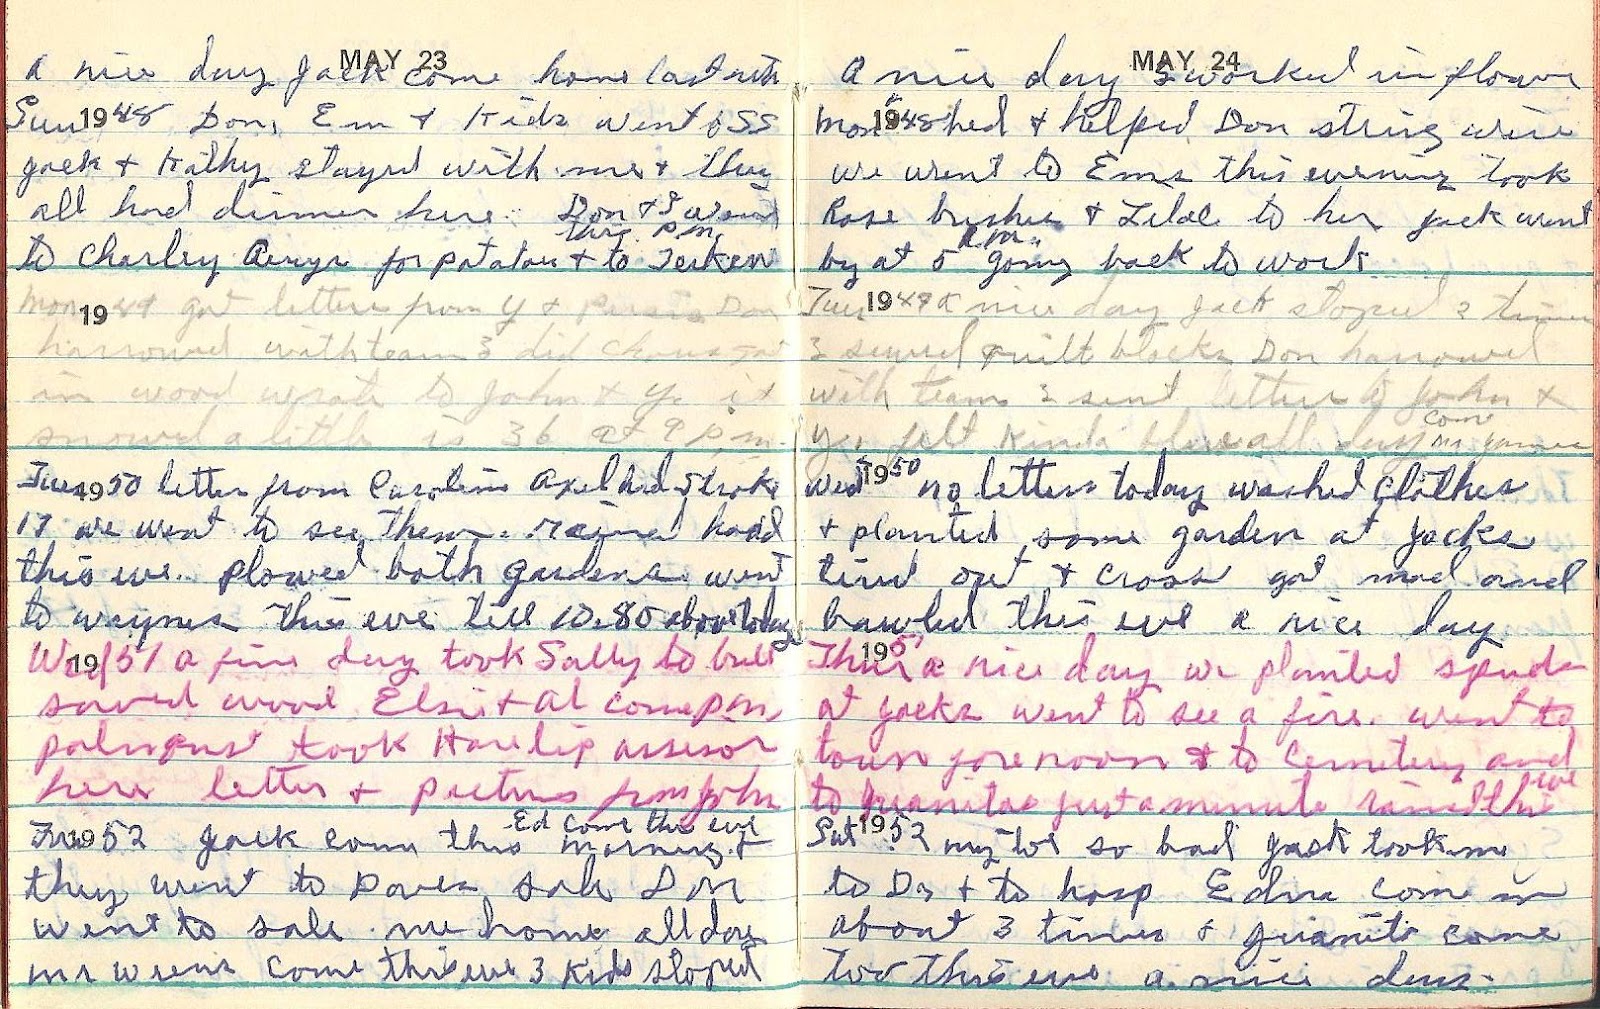 MAY 23
A nice day Jack come home last nite
Sun 1948 Don, Em & Kids went to SS
Jack & Kathy stayed with me & they
all had dinner here Don & I went
this P.M.
to Charley for potatoes & to
Mon 1949 got letters from Y & Don
harrowed with team I did chores got
in wood wrote to John & Y. it
snowed a little is 36 at 9 p.m.
Tues 1950 letter from Caroline Axel had stroke
17 we went to see them. rained hard
this eve. plowed both gardens went
to waynes this eve till 10. 80 above today
Wed 1951 a fine day took Sally to bull
sawed wood Elsie & Al come pm
took assesor
here letter & pictures from John
Ed come this eve
Fri 1952 Jack come this morning &
they went to Daves sale Don
went to sale me home all day
Mr come this eve 3 Kids stoped
MAY 24
A nice day I worked in flower
Mon 1948 bed & helped Don string wire
we went to Ems this evening took
Rose bushes & Lilac to her Jack went
A.M.
by at 5 going back to work
Tues 1949 A nice day Jack stoped 2 times
I sewed quilt blocks Don harrowed
with team I sent letter to John &
Y. felt kinda blue all day come
Mr
Wed 1950 no letters today washed clothes
& planted some garden at Jacks
tired out & cross got mad and
bawled this eve a nice day
Thur 1951 a nice day we planted spuds
at Jacks went to see a fire. went to
town forenoon & to Cemetery and
to Juanitas just a minute rained this eve
Sat 1952 my toe so bad Jack took me
to Dr & to hosp Edna come in
about 3 times & Juanita come
too this eve a nice day.